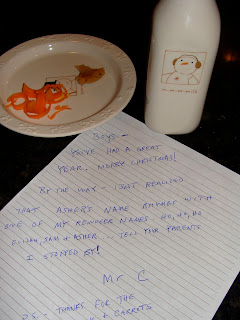 Boys—
YOU'VE HAD A GREAT
YEAR, MERRY CHRISTMAS!
BY THE WAY - I JUST REALIZED
THAT ASHER'S NAME RHYMES WITH
ONE OF MY REINDEER NAMES. HO, HO, HO
ELIJAH, SAM & ASHER - TELL YOUR PARENTS
I STOPPED BY!
Mr C
P.S. - THANKS FOR THE
& CARROTS